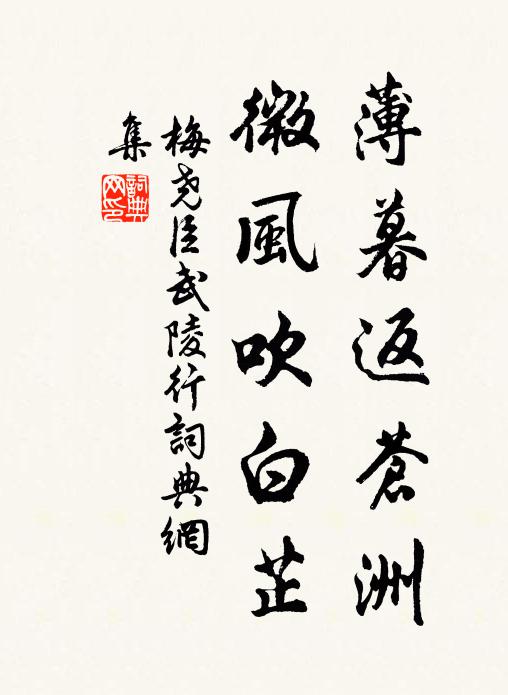 薄暮返蒼洲
微風吹白芷
梅堯臣武陵行詞典網
集
詞典网印